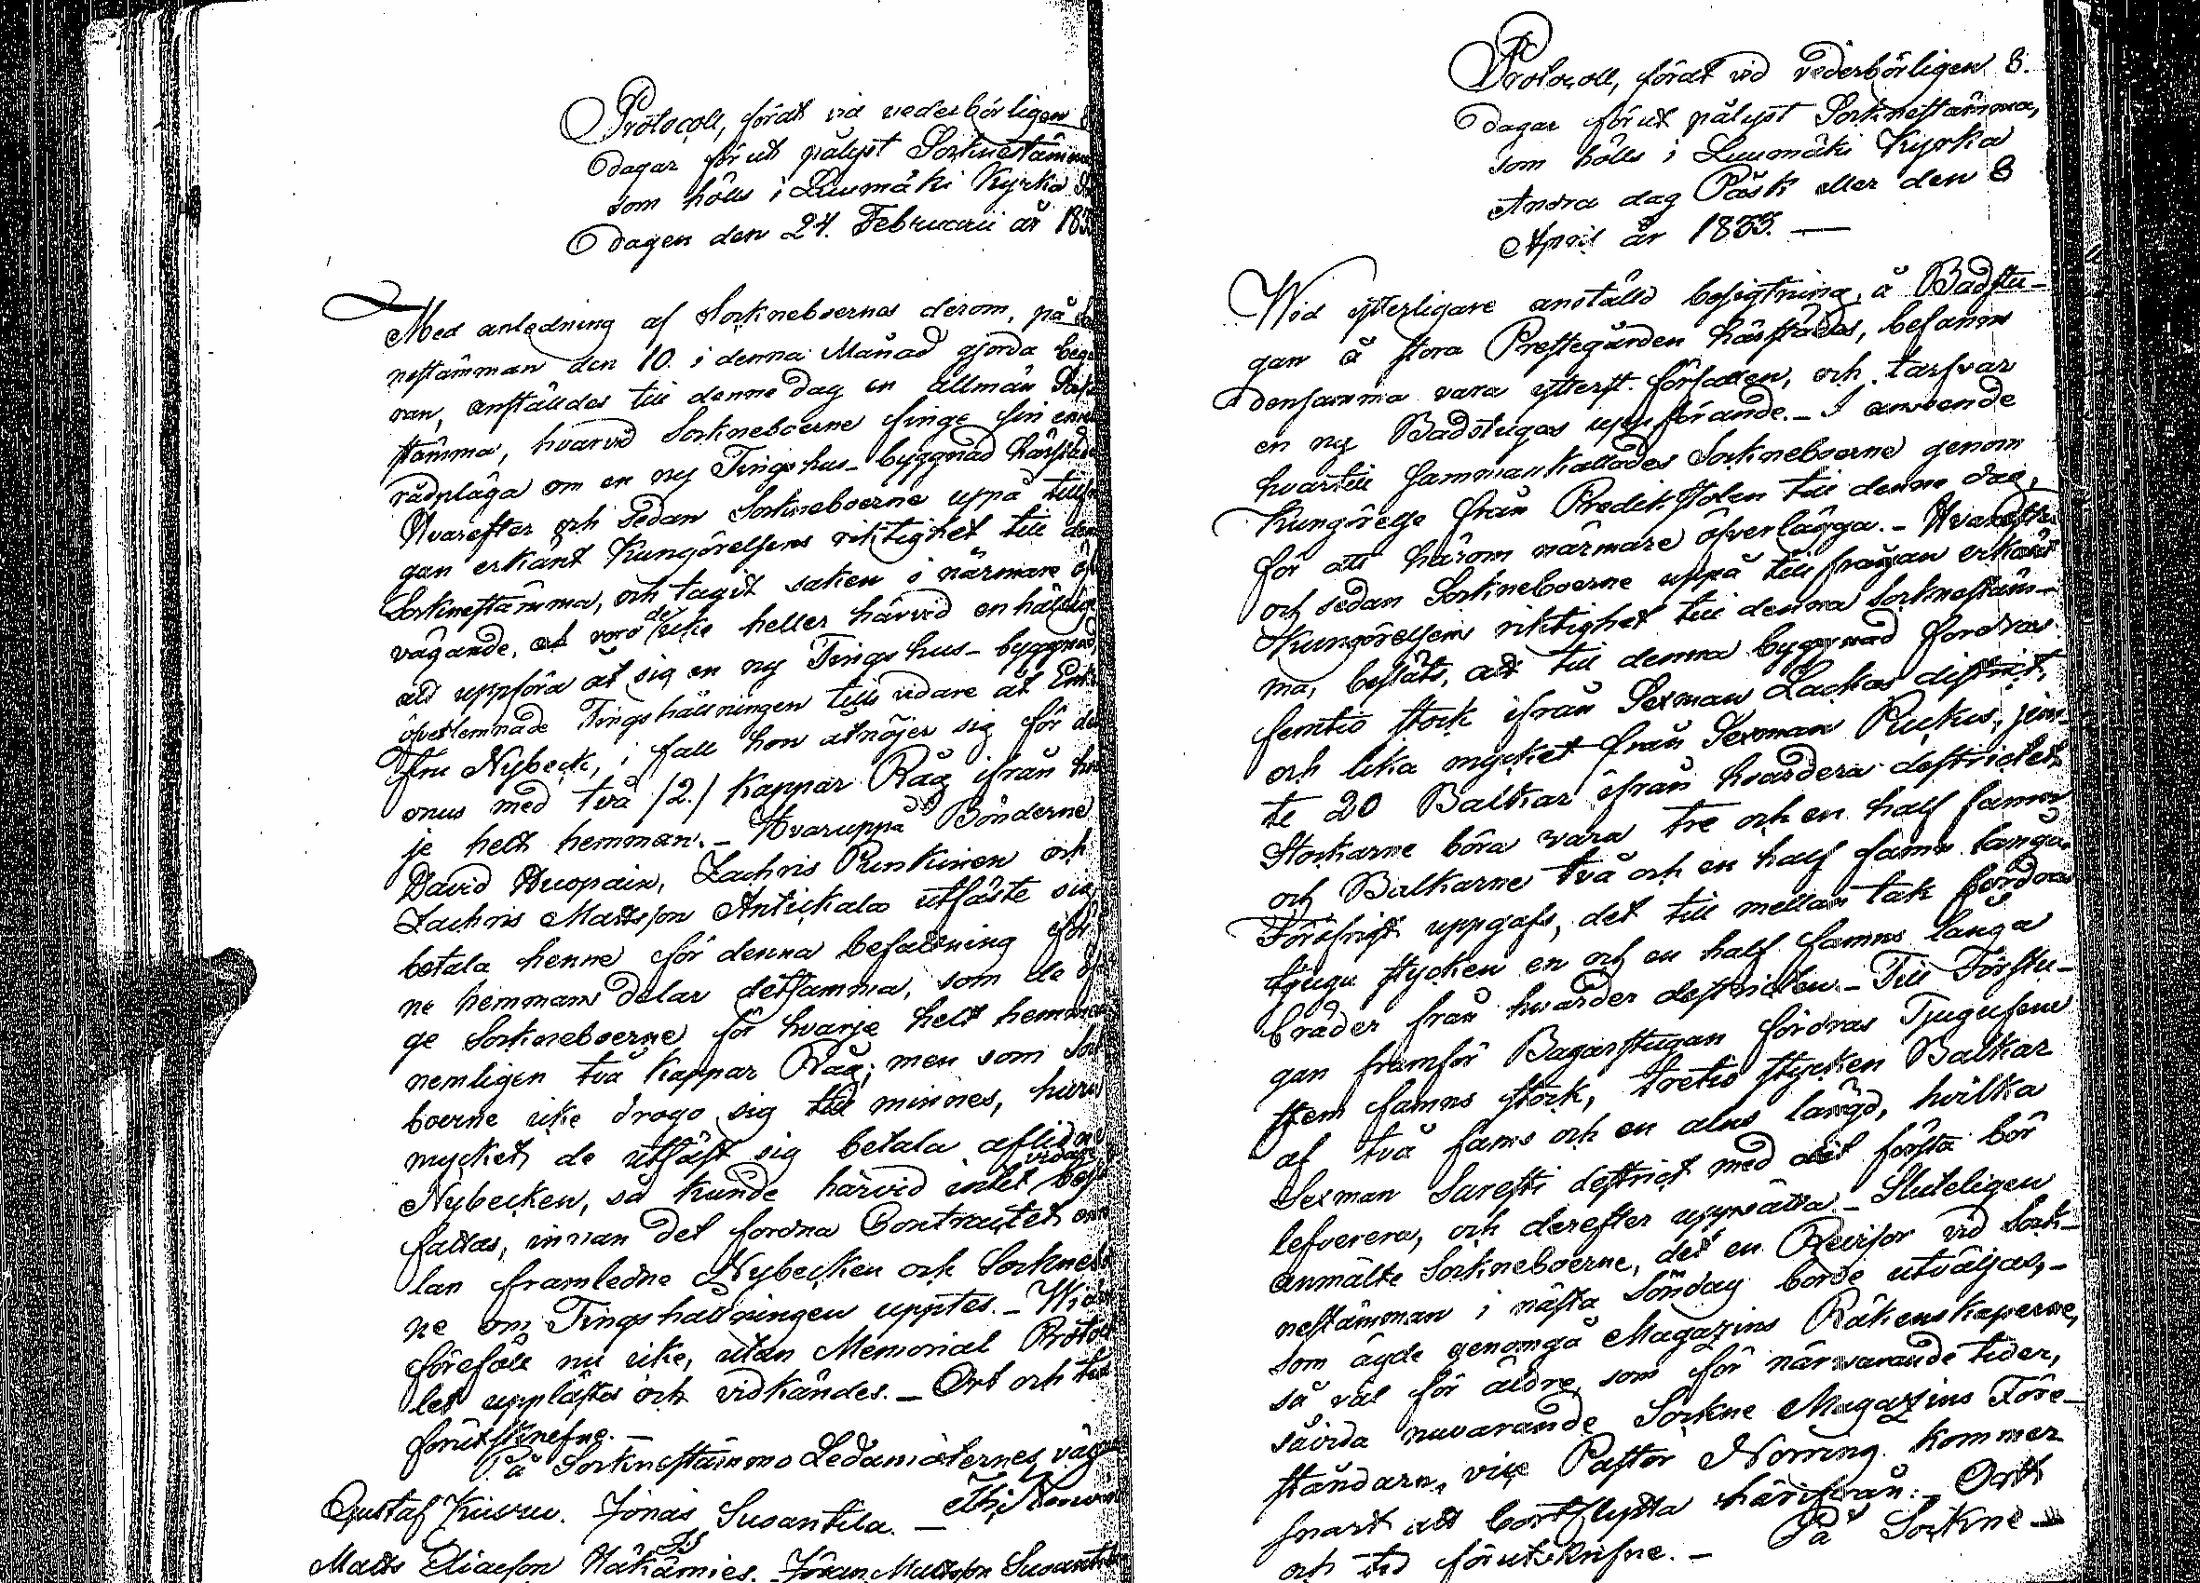 Protocoll, fördt vid vederbörligen 8
dagar förut pålyst Sockne stämma
som hölls i Luumäki Kyrka
dagen den 24. Februarii år 183
Med anledning af Sockneboernas derom, på
nestämman den 10. i denna Månad gjorda bega
ran, anställdes till denne dag en allmän Sock
stämma, hvarvid Sockneboerne finge sin
rådpläga om en ny Tingshus-byggnad härstädes
Hvarefter och sedan Sockneboerne uppå tillfrå
gan erkänt Kungörelsens riktighet till den
Sockne stämma, och tagit saken i närmare öf
vägande, voro de icke heller härvid enhällige
att uppföra åt sig en ny Tingshus-byggnad,
öfverlemnade Tingshållningen tills vidare åt Enke
Fru Nybeck, i fall hon åtnöjer sig för de
onus med två /2./ Kappar Råg ifrån hvar
je helt hemman. - Hvaruppå Bönderne
David Huopain, Zachris Runkinen och
Zachris Mattsson Anttikala utfäste sig
betala henne för denna befattning för
ne hemmans delar detsamma, som de öf
ge Sockneboerne för hvarje helt hemman
nemligen två Kappar Råg; men som Sock
boerne icke drogo sig till minnes, huru
mycket de utfäst sig betala aflidne
Nybecken, så kunde härvid intet vidare bes
fattas, innan det fordna Contractet em
lan framledne Nybecken och Sockneb
ne om Tingshållningen upptes. - Widare
föreföll nu icke, utan Memorial Protocol
let upplästes och vidkändes. - Ort och tid
förutskrefne. -
På Sockne stämmo Ledamöternes vägnar
Gustaf Kiuru. Jonas Suoanttila. -
Matts Eliasson Häkämies. Jöran Mattson Suoanttila
Protocoll, fördt vid vederbörligen 8.
dagar förut pålyst Sockne stämma,
som hölls i Luumäki Kyrka
Andra dag Påsk eller den 8
April år 1833. —
Wid ytterligare anställd besigtning, å Badstu-
gan å stora Prestegården härstädes, befanns
densamma vara ytterst förfallen, och tarfvar
en ny Badstugas uppförande. - I anseende
hvartill sammankallades Sockneboerne genom
Kungörelse från Predikstolen till denne dag,
för att härom närmare öfverlägga. - Hvarefter
och sedan Sockneboerne uppå tillfrågan erkänt
Kungörelsens riktighet till denna Socknestäm-
ma, beslöts, att till denna byggnad fordras
femtio stock ifrån Sexman Lackas district,
och lika mycket från Sexman Puckus, jem-
te 20 Balkar ifrån hvardera districtet
Stockarne böra vara tre och en half famn
och Balkarne två och en half famn långa.
Föröfrigt uppgafs, det till mellan tak fordras
tjugu stycken en och en half famns långa
bräder från hvarder districten. - Till Förstu-
gan framför Bagarstugan fordras Tjugufem
fem famns stock, tretio stycken Balkar
af två fams och en alns längd, hvilka
Sexman Surefti district med det första bör
lefverera, och derefter uppsätta. - Sluteligen
anmälte Sockneboerne, det en Revisor vid Sock-
nestämman i nästa Söndag borde utväljas, -
som ägde genomgå Magazins Räkenskaperne,
så väl för äldre, som för närvarande tider,
såvida nuvarande Sockne Magazins Före-
ståndarn, vice Pastor Norring kommer
snart att bortflytta härifrån. Ort
och tid förutskrifne. - På Sockne-